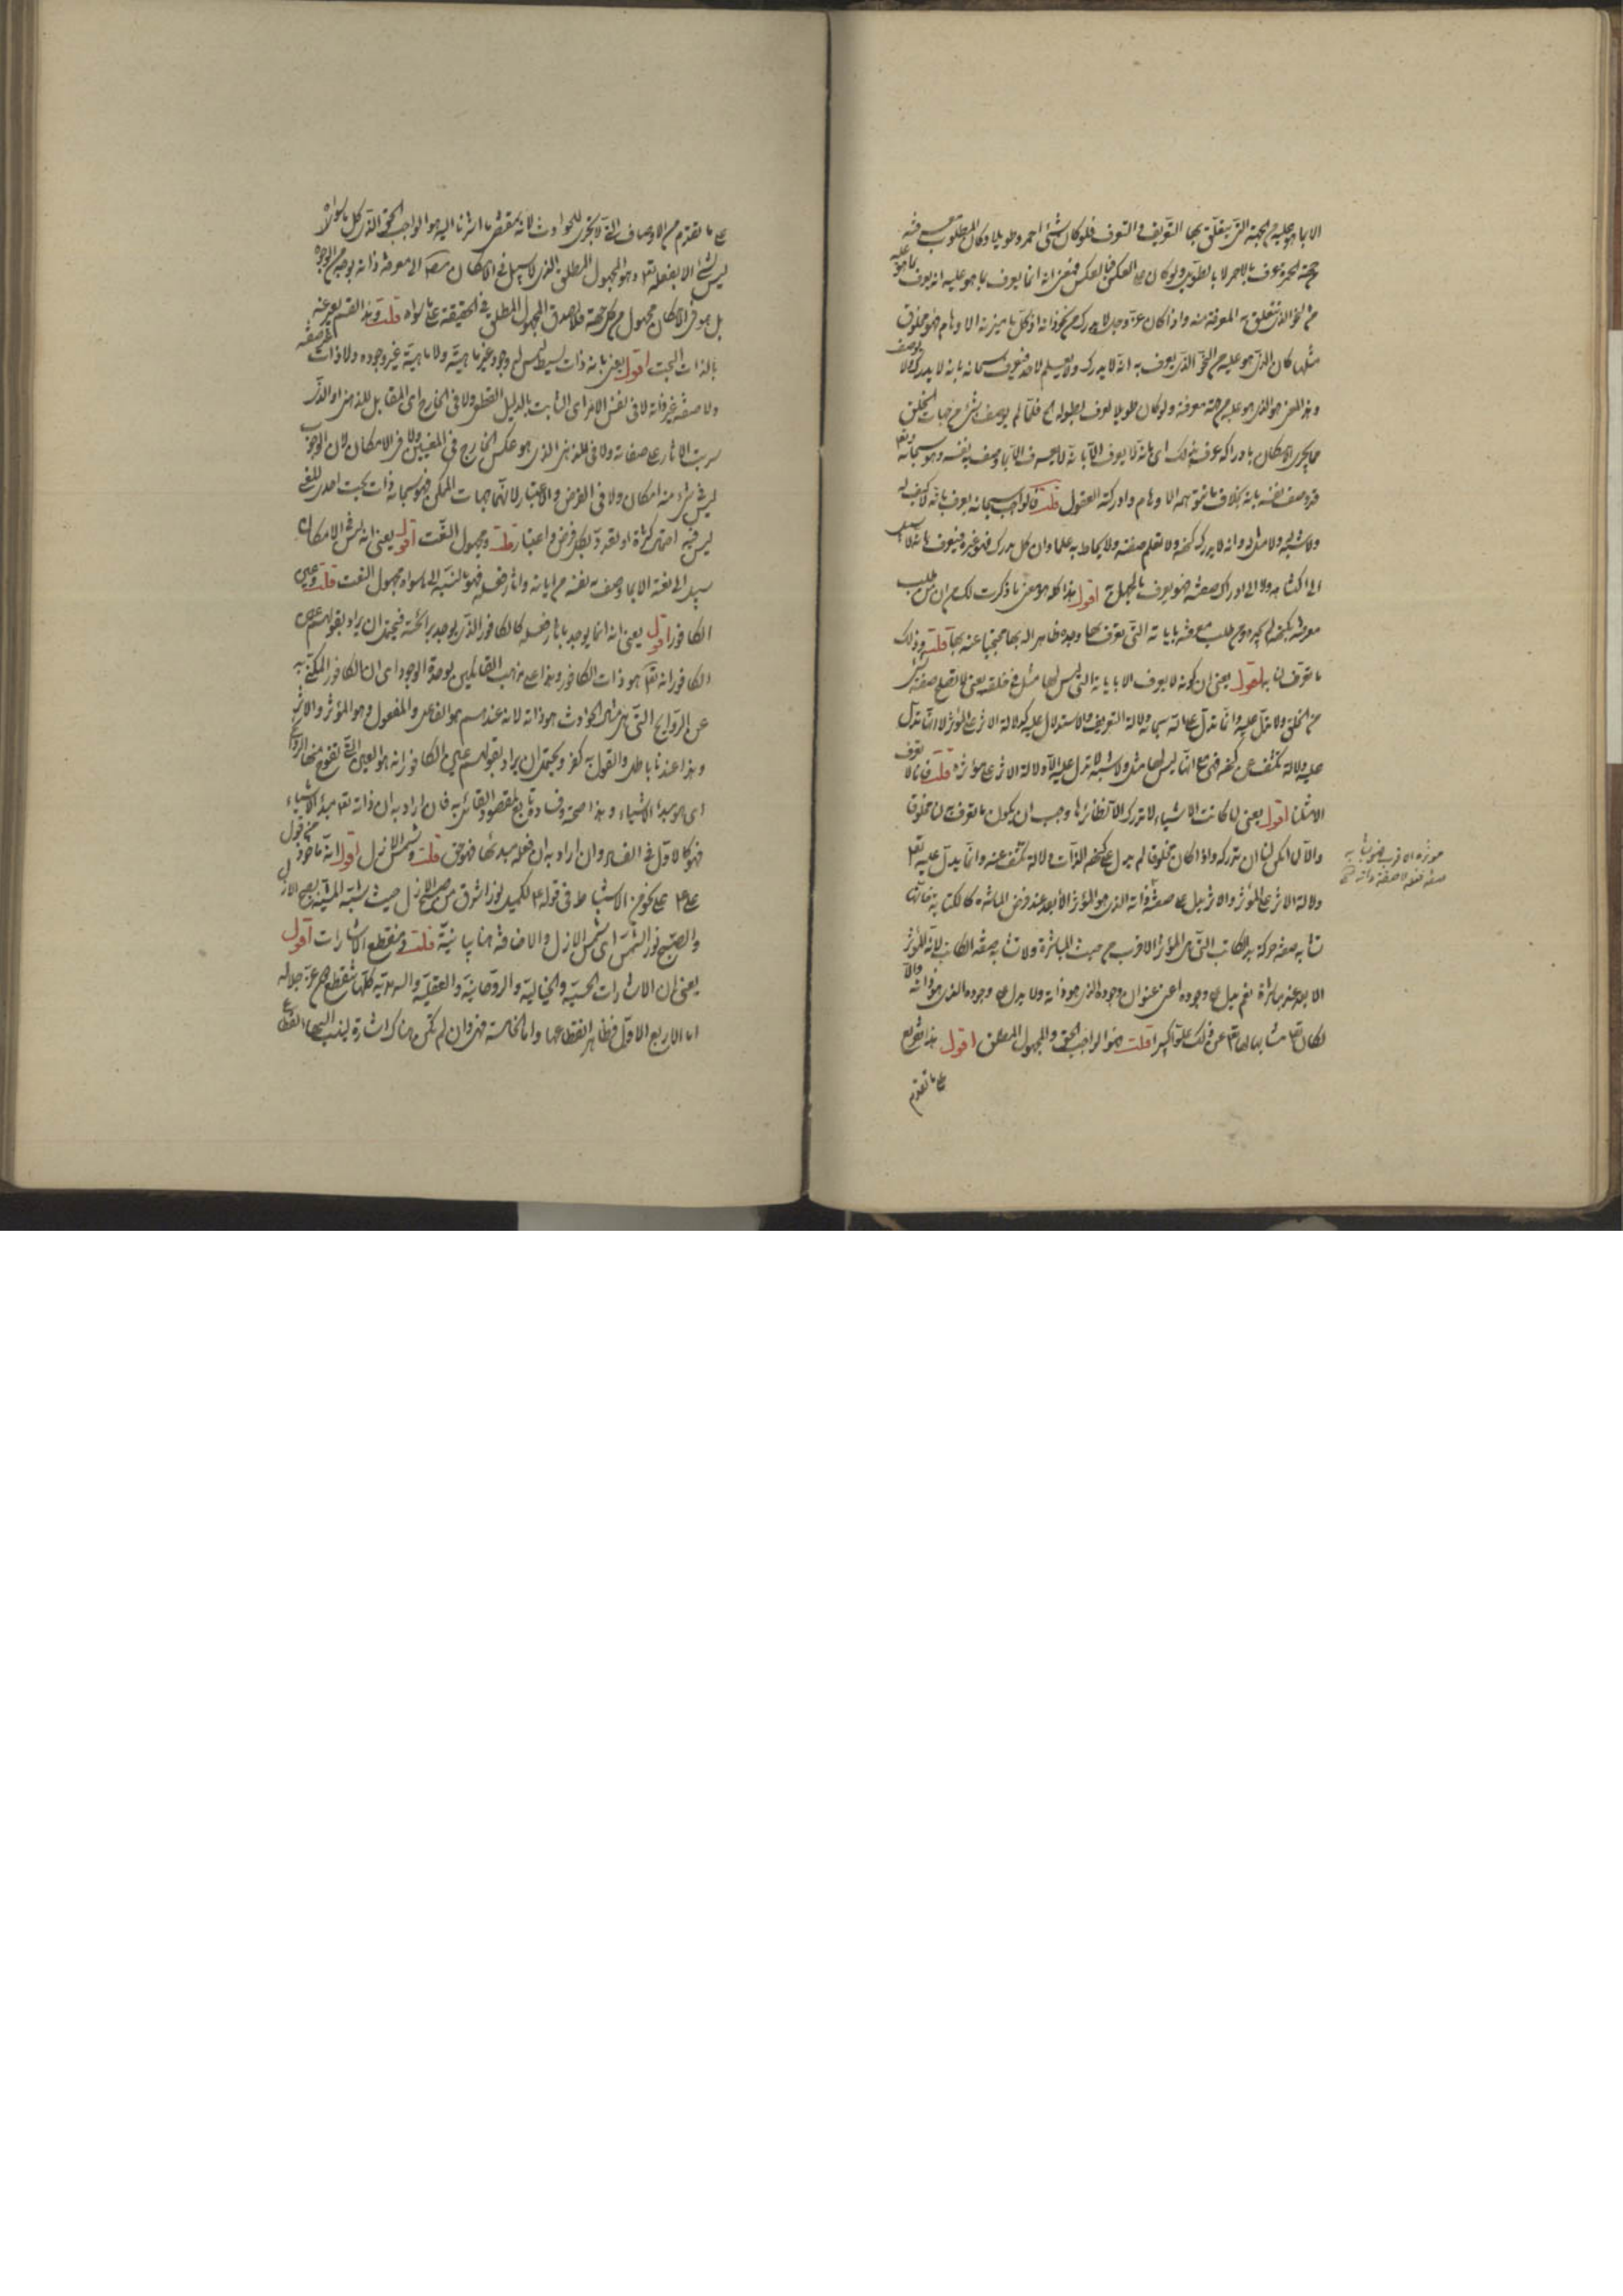 الا بما هو عليه من الجهة التي يتعلق بها التعريف والتعرف فلو كان شئ احمر وطويلا وكان المطلوب معرفته
من جهة الحمرة عرف بالاحمر لا بالطويل ولو كان على العكس فبالعكس فمعنى انه انما يعرف بما هو عليه انه يعرف بما هو عليه
من النحو الذي تتعلق به المعرفة منه واذا كان عز وجل لا يدرك من نحو ذاته اذ كل ما ميزته الاوهام فهو مخلوق
مثلها كان الذي هو عليه من النحو الذي يعرف به انه لا يدرك ولا يعلم لاحد فيعرف سبحانه بانه لا يدرك ولا يوصف
وهذا المعنى هو الذي هو عليه من جهة معرفته ولو كان طويلا لعرف بطوله الخ فلما لم يوصف بشئ من جهات الخلق
مما يجري الامكان بادراكه عرف بذلك اي بانه لا يعرف الا بانه لا يعرف الا بما وصف به نفسه وهو سبحانه وتعالى
قد وصف نفسه بانه بخلاف ما توهمه الاوهام وادركته العقول قلت فالواجب سبحانه يعرف بانه لا كيف له
ولا شبه له ولا مثل له وانه لا يدرك كنهه ولا تعلم صفته ولا يحاط به علما وان كل مدرك فهو غيره فيعرف بانه لا سبيل
الى اكتناهه ولا الى ادراك صفته فهو يعرف بالجهل به اقول هذا كله هو معنى ما ذكرت لك من ان من طلب
معرفته بكنهه لم يجده ومن طلب معرفته باياته التي تعرف بها وجده ظاهرا له بها محتجبا عنه بها قلت وذلك
ما تعرف لنا به اقول يعني ان كونه لا يعرف الا باياته التي ليس لها مثل في خلقه يعني لا تقع صفة شئ
من الخلق ولا تدل عليه وانما تدل على انه سبحانه دلالة التعريف والاستدلال عليه كدلالة الاثر على المؤثر لا انما تدل
عليه دلالة تكشف عن كنهه فهي مع انها ليس لها مثل ولا شبه لا تدل عليه الا دلالة الاثر على مؤثره قلت فانا لا نعرف
الا مثلنا اقول يعني لما كانت الاشياء لا تدرك الا نظائرها وجب ان يكون ما تعرف به لنا مخلوقا
والا لا يمكن لنا ان ندركه واذا كان مخلوقا لم يدل على كنهه الذات دلالة تكشف عنه وانما يدل عليه تعالى
دلالة الاثر على المؤثر والاثر يدل على صفة ذاته الذي هو المؤثر الابعد عند فرض المباشرة كالكتابة فانها
تشابه صفة حركة يد الكاتب التي هي المؤثر الاقرب من حيث المباشرة ولا تشابه صفة الكاتب لانه المؤثر
الابعد عند مباشرته نعم يدل على وجوده اعني عنوان وجوده الذي هو ذاته ولا يدل على وجوده الذي هو ذاته والا
لكان تعالى مشابها لها تعالى عن ذلك علوا كبيرا قلت وهو الواجب الحق والمجهول المطلق اقول هذا تفريع
على ما تقدم
مؤثره الاقرب فهو يشابه
صفة فعله لا صفة ذاته صح
على ما تقدم من الاوصاف التي لا تجري للحوادث لانه بمقتضى ما اشرنا اليه هو الواجب الحق الذي كل ما سواه
ليس شيئا الا بفعله تعالى وهو المجهول المطلق الذي لا سبيل في الامكان الى معرفة ذاته بوجه من الوجوه
بل هو في الامكان مجهول من كل جهة فلا يصدق المجهول المطلق في الحقيقة على ما سواه قلت وهذا القسم يعبر عنه
بالذات البحت اقول يعني بانه ذات بسيط ليس له وجود غير ماهيته ولا ماهية غير وجوده ولا ذات غير صفته
ولا صفة غير ذاته لا في نفس الامر اي الثابت بالدليل القطعي ولا في الخارج اي المقابل للذهني او الذي
ترتب الاثار على صفاته ولا في الذهني الذي هو عكس الخارج في المعنيين ولا في الامكان لان الوجوب
ليس فيه شئ من امكان ولا في الفرض والاعتبار لانهما جهات الممكن فهو سبحانه ذات بحت احدي المعنى
ليس فيه احتمال كثرة او تعدد بكل فرض واعتبار قلت ومجهول النعت اقول يعني انه ليس في الامكان
سبيل الى نعته الا بما وصف به نفسه من اياته واثار فعله فهو بالنسبة الى ما سواه مجهول النعت قلت وعين
الكافور اقول يعني انه انما يوجد باثار فعله كالكافور الذي يوجد برائحته فيحتمل ان يراد بقولهم عين
الكافور انه تعالى هو ذات الكافور وهذا على مذهب القائلين بوحدة الوجود اي ان الكافور المكنى به
عن الروايح التي هي مثال الحوادث هو ذاته لانه عندهم هو الفاعل والمفعول وهو المؤثر والاثر
وهذا عندنا باطل والقول به كفر ويحتمل ان يراد بقولهم عين الكافور انه هو العين التي تفوح منها الروائح
اي هو مبدأ الاشياء وهذا صحته وفساده تابع لمقصود القائل به فان اراد به ان ذاته تعالى مبدأ الاشياء
فهو كالاول في الفساد وان اراد به ان فعله مبدئها فهو حق قلت وشمس الازل اقول انه ماخوذ من قول
علي ع على نحو من الاستنباط في قوله ع لكميل نور اشرق من صبح الازل حيث شبه المشية بصبح الازل
والصبح نور الشمس اي شمس الازل والاضافة هنا بيانية قلت ومنقطع الاشارات اقول
يعني ان الاشارات الحسية والخيالية والروحانية والعقلية والسرمدية كلها تنقطع دون عز جلاله
اما الاربع الاول فظاهر انقطاعها واما الخامسة فهي وان لم تكن هناك اشارة ينسب اليها انقطاع